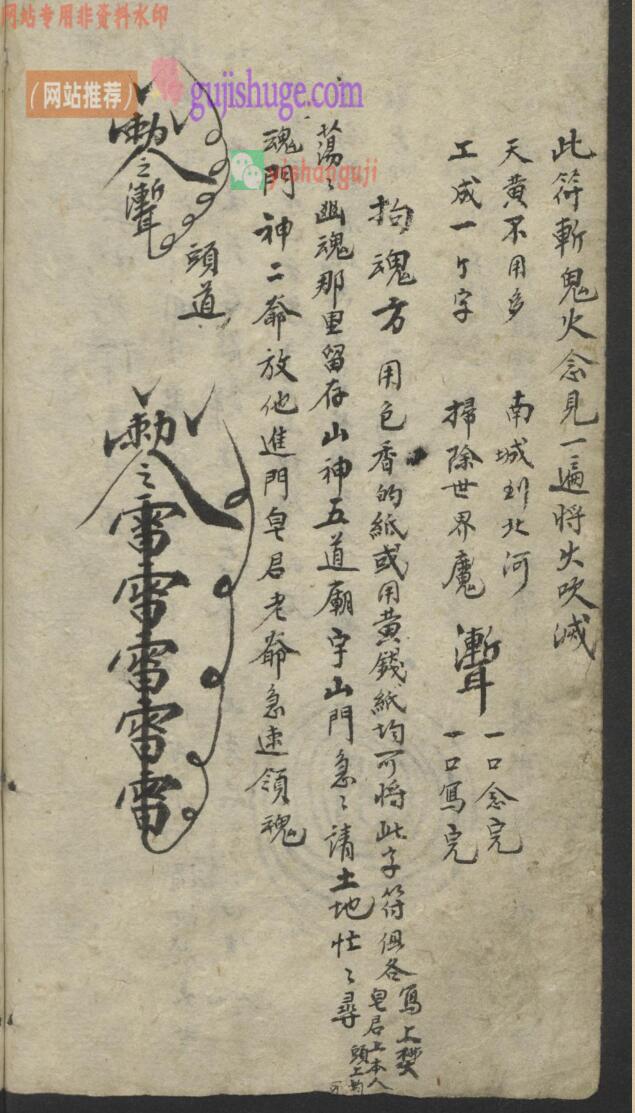 网站专用非资料水印
（网站推荐）
gujishuge.com
yishanguji
此符斬鬼火念見一遍将火吹滅
天黄不用多 南城到北河 一口念完
工成一个字 掃除世界魔 聻 一口寫完
拘魂方 用包香的紙或用黄錢紙均可将此字符俱各寫上焚
皂君上本人
頭上均可
蕩〻幽魂那里留存山神五道廟宇山門急〻請土地忙〻尋
魂門神二爺放他進門皂君老爺急速領魂
頭道
勅令之聻
勅令之雷雷雷雷雷